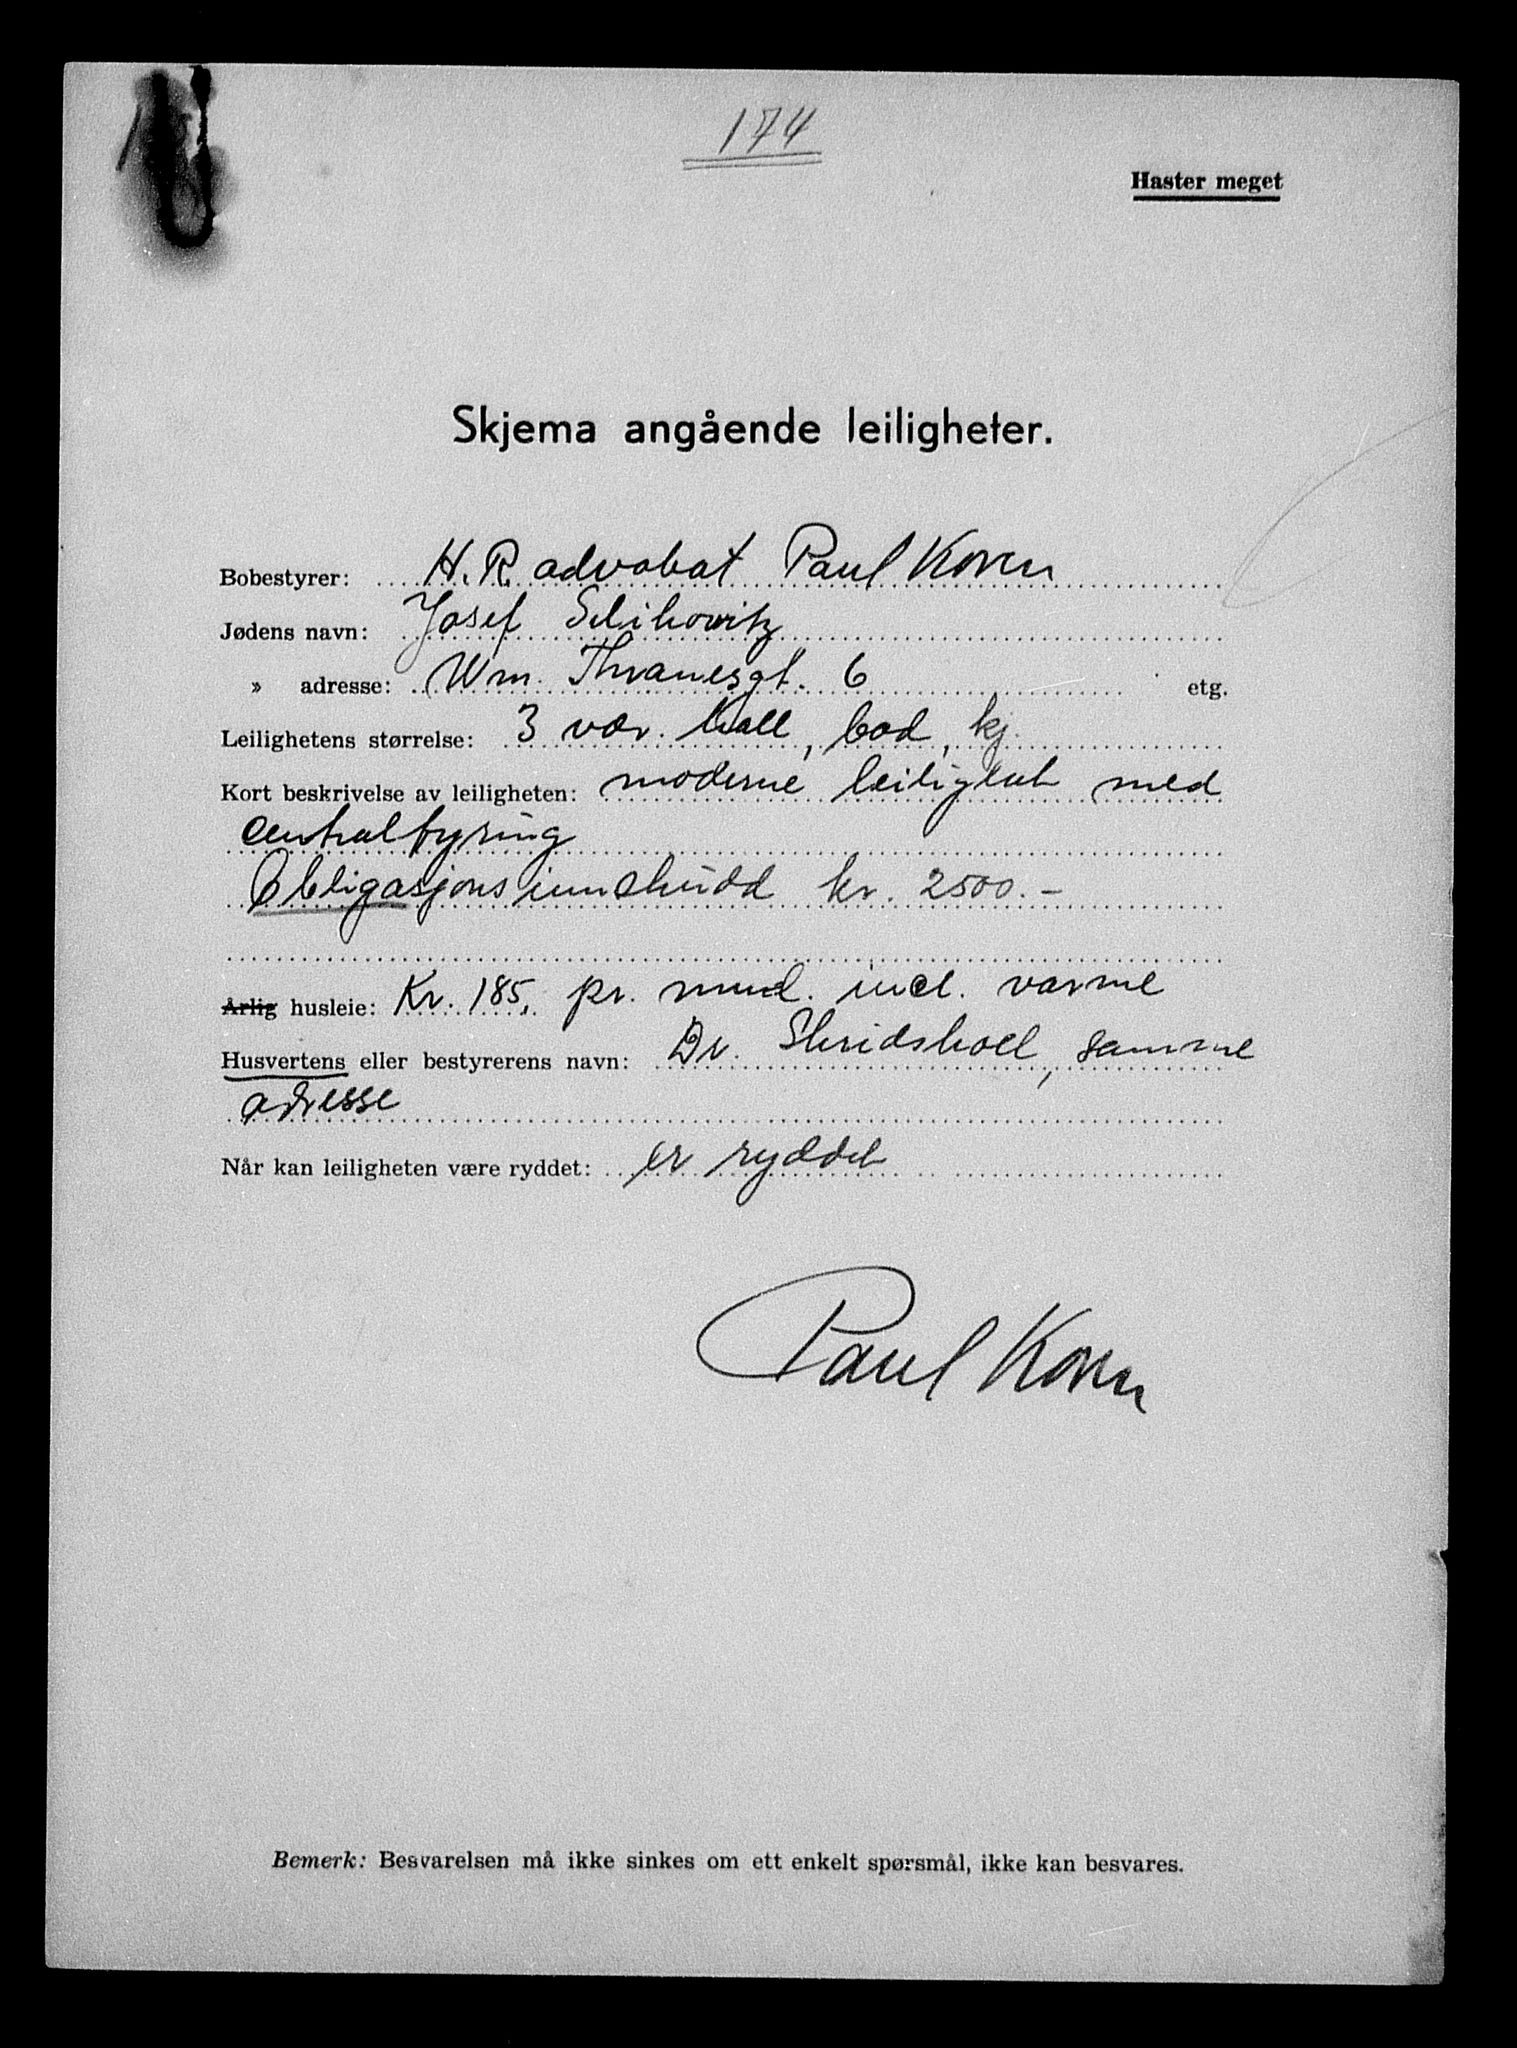 174
Haster meget
Skjema angående leiligheter.
Bobestyrer: H. R. advokat Paul Koren
Jødens navn: Josef Selikowitz
» adresse: Wm. Thranesgt. 6 etg.
Leilighetens størrelse: 3 vær. hall, bad, kj.
Kort beskrivelse av leiligheten: moderne leilighet med
centralfyring
Obligasjonsinnskudd kr. 2500.-
Årlig husleie: Kr. 185, pr. mnd. incl. varme
Husvertens eller bestyrerens navn: Dr. Skridshoel, samme
adresse
Når kan leiligheten være ryddet: er ryddet
Paul Koren
Bemerk: Besvarelsen må ikke sinkes om ett enkelt spørsmål, ikke kan besvares.